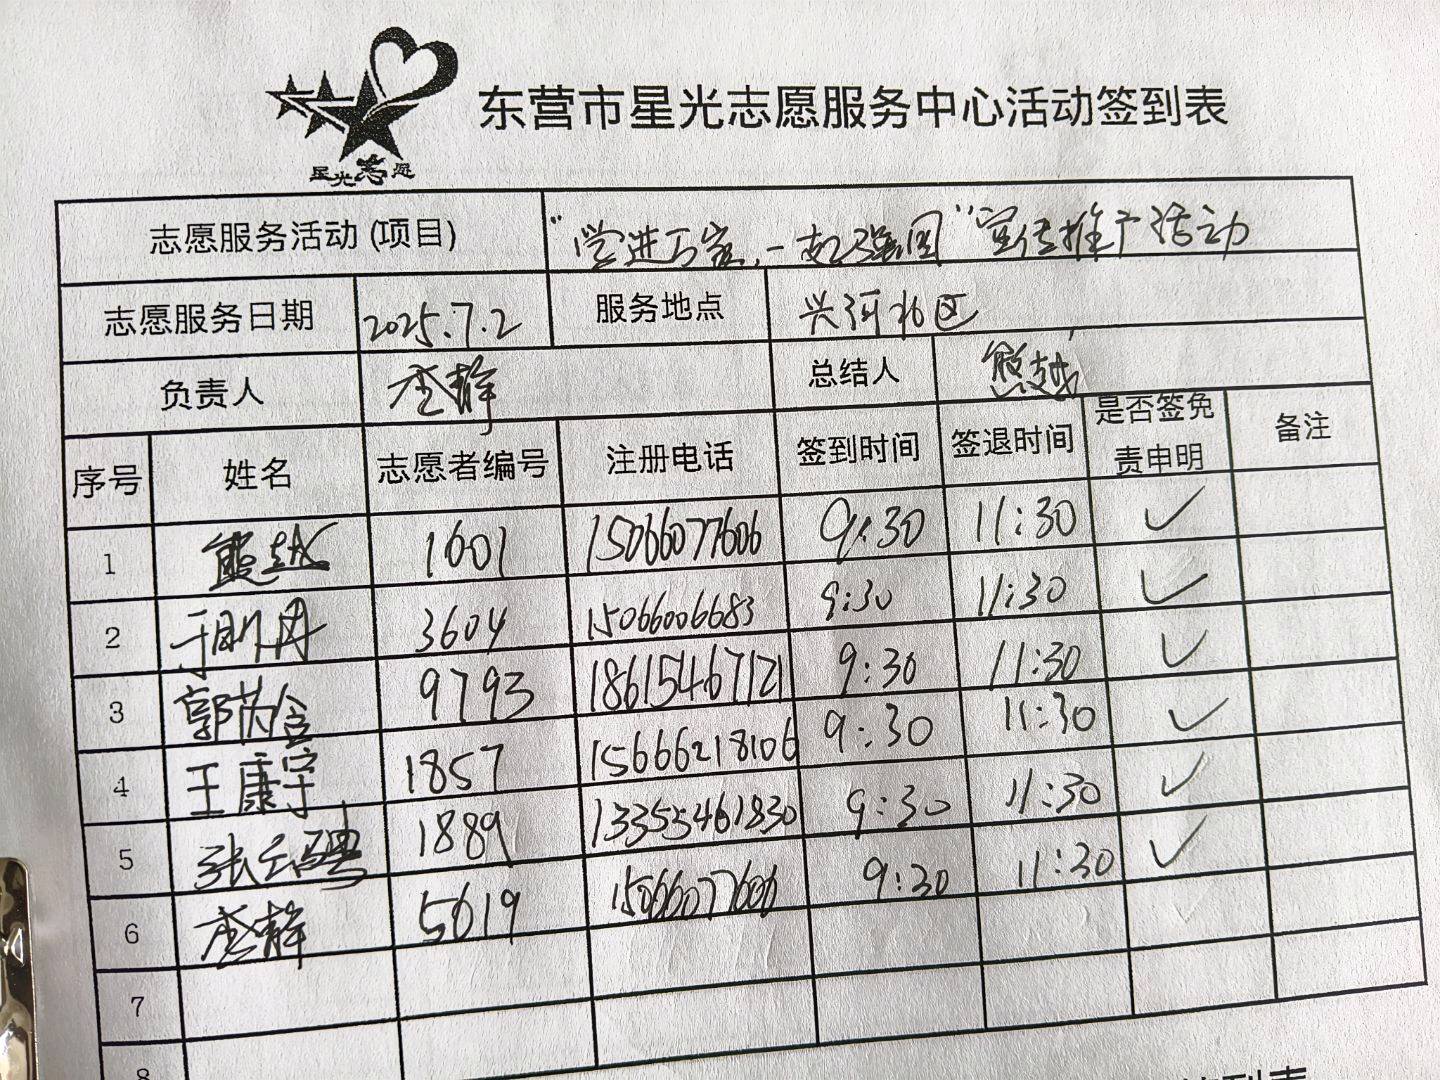 星光志愿
东营市星光志愿服务中心活动签到表
志愿服务活动(项目) “学进万家,一起强国”宣传推广活动
志愿服务日期 2025.7.2 服务地点 兴河北区
负责人 李静 总结人 熊越
序号 姓名 志愿者编号 注册电话 签到时间 签退时间 是否签免责申明 备注
1 熊越 1601 15066077606 9:30 11:30 ✓
2 于明月 3604 15066006683 9:30 11:30 ✓
3 郭芮含 9793 18615467121 9:30 11:30 ✓
4 王康宇 1857 15666218106 9:30 11:30 ✓
5 张云骋 1889 13355461830 9:30 11:30 ✓
6 李静 5619 15066077606 9:30 11:30 ✓
7
8